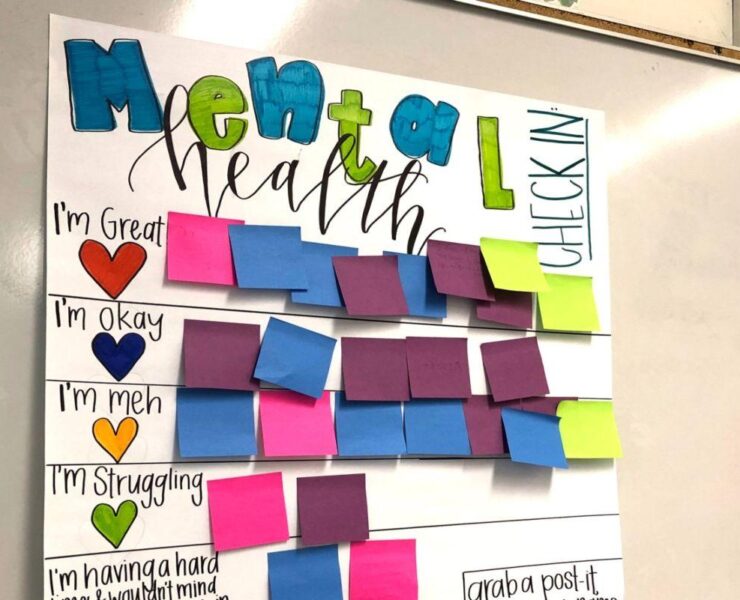 Mental
health
CHECK IN:
I'm Great
I'm okay
I'm meh
I'm Struggling
I'm having a hard
time & wouldn't mind
grab a post-it,